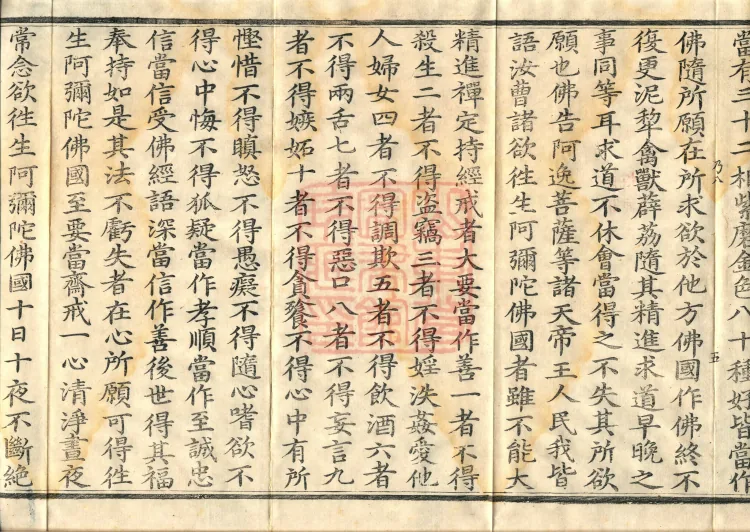 當有三十二相紫磨金色八十種好皆當作
佛隨所願在所求欲於他方佛國作佛終不
復更泥犁禽獸薜荔隨其精進求道早晚之
事同等耳求道不休會當得之不失其所欲
願也佛告阿逸菩薩等諸天帝王人民我皆
語汝曹諸欲徃生阿彌陀佛國者雖不能大
精進禪定持經戒者大要當作善一者不得
殺生二者不得盜竊三者不得婬泆姦愛他
人婦女四者不得調欺五者不得飲酒六者
不得兩舌七者不得惡口八者不得妄言九
者不得嫉妬十者不得貪餮不得心中有所
慳惜不得瞋怒不得愚癡不得隨心嗜欲不
得心中悔不得狐疑當作孝順當作至誠忠
信當信受佛經語深當信作善後世得其福
奉持如是其法不虧失者在心所願可得徃
生阿彌陀佛國至要當齋戒一心清淨晝夜
常念欲徃生阿彌陀佛國十日十夜不斷絶
乃八
五